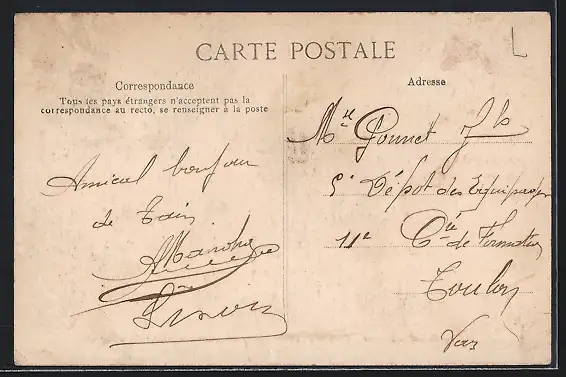 CARTE POSTALE
Correspondance
Tous les pays étrangers n'acceptent pas la
correspondance au recto, se renseigner à la poste
Adresse
Amical bonjour
de Tain
Mr Ponnet Jh
5e Dépôt des Equipages
11e Cie de Formation
Toulon
Var